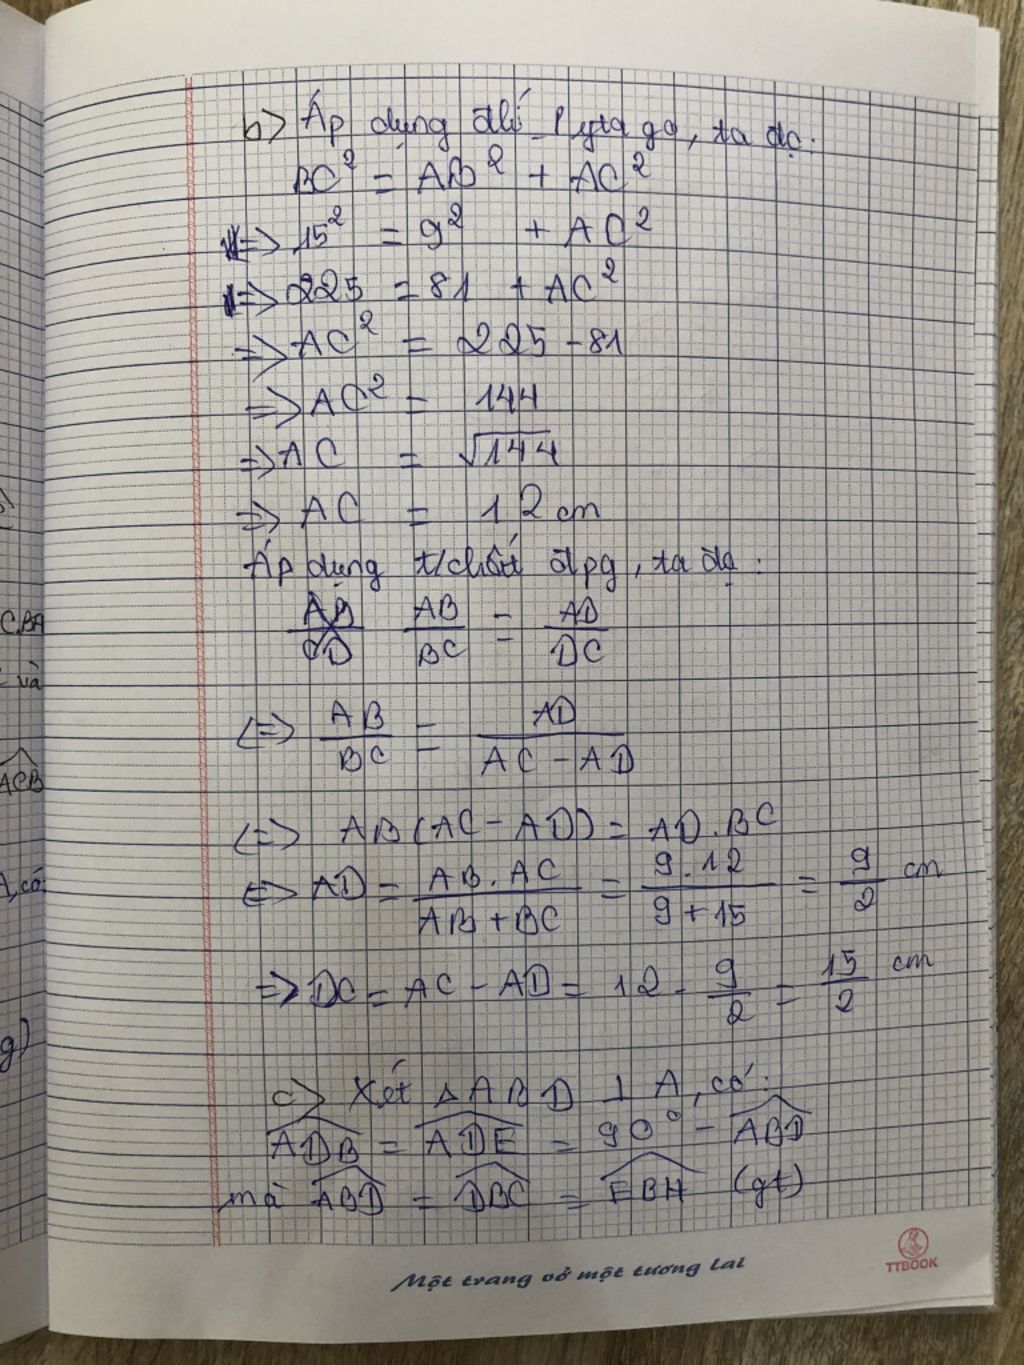 CBA
và
ACB
A, có
g)
b) Áp dụng đlí Pytago, ta đc:
BC² = AB² + AC²
=> 15² = 9² + AC²
=> 225 = 81 + AC²
=> AC² = 225 - 81
=> AC² = 144
=> AC = √144
=> AC = 12 cm
Áp dụng t/chất đpg, ta đc:
AB/CD AB/BC = AD/DC
<=> AB/BC = AD/(AC - AD)
<=> AB(AC - AD) = AD.BC
<=> AD = (AB.AC)/(AB + BC) = (9.12)/(9 + 15) = 9/2 cm
=> DC = AC - AD = 12 - 9/2 = 15/2 cm
c) Xét △ABD ⊥ A, có:
ADB = ADE = 90° - ABD
mà ABD = DBC = EBH (gt)
Một trang vở một tương lai
TTBOOK